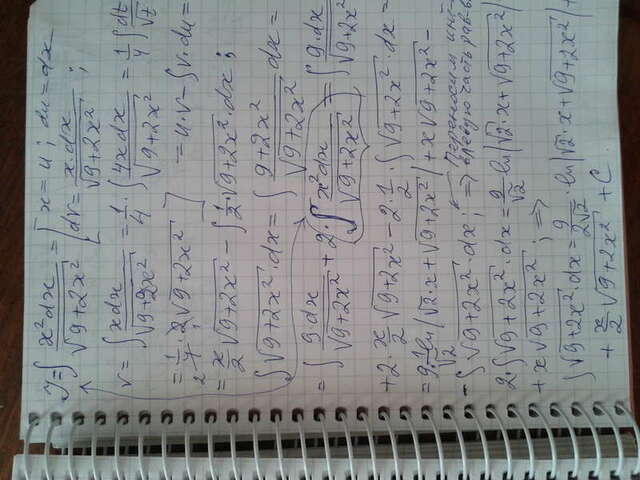 y = ∫ x²dx/√(9+2x²) = [ x = u ; du = dx
dv = xdx/√(9+2x²) ;
v = ∫ xdx/√(9+2x²) = 1/4 · ∫ 4xdx/√(9+2x²) = 1/4 ∫ dt/√t
= 1/4 · 2√(9+2x²) ] = u·v − ∫ v·du =
= x/2 √(9+2x²) − ∫ 1/2 √(9+2x²)·dx ;
∫ √(9+2x²)·dx = ∫ (9+2x²)/√(9+2x²) · dx =
= ∫ 9dx/√(9+2x²) + 2·∫ x²dx/√(9+2x²) = ∫ 9·dx/√(9+2x²)
+ 2·x/2 √(9+2x²) − 2·1/2 · ∫ √(9+2x²)·dx =
= 9·1/√2 ln|√2·x + √(9+2x²)| + x√(9+2x²) −
− ∫ √(9+2x²)·dx ; ⇒ Переносим
в левую часть рав-в
2·∫ √(9+2x²)·dx = 9/√2 · ln|√2·x + √(9+2x²)|
+ x√(9+2x²) ; ⇒
∫ √(9+2x²)·dx = 9/(2√2) · ln|√2·x + √(9+2x²)| +
+ x/2 √(9+2x²) + C